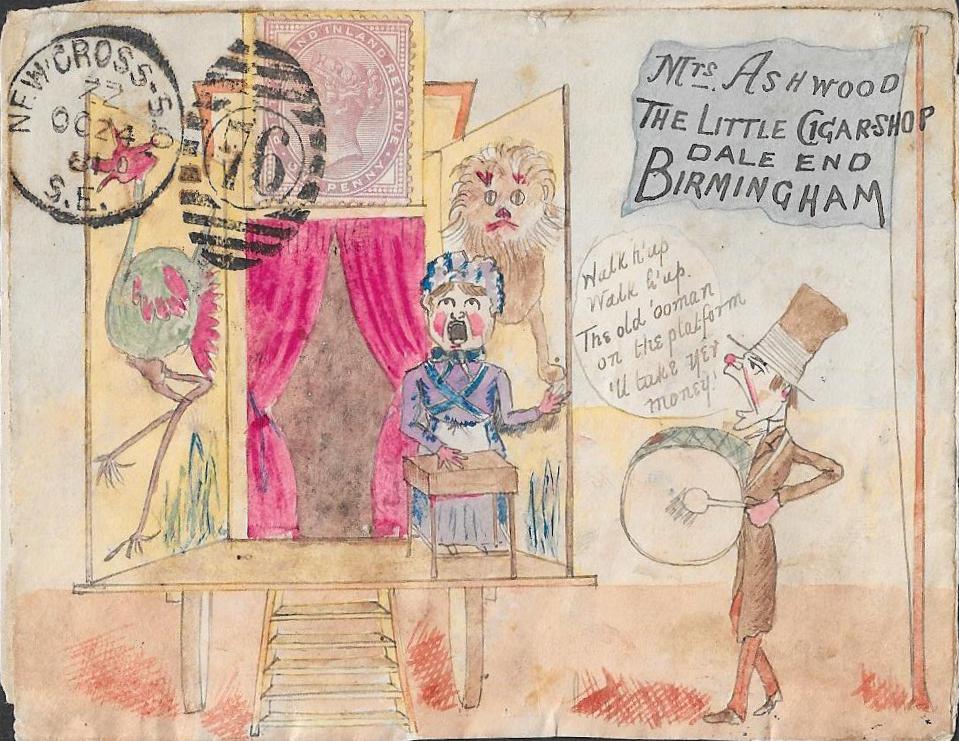 NEW CROSS-S.O
ZZ
OC 24
S.E.
76
AND INLAND REVENUE
PENNY
Mrs. ASHWOOD
THE LITTLE CIGAR-SHOP
DALE END
BIRMINGHAM
Walk h'up
Walk h'up.
The old 'ooman
on the platform
'll take yer
money!